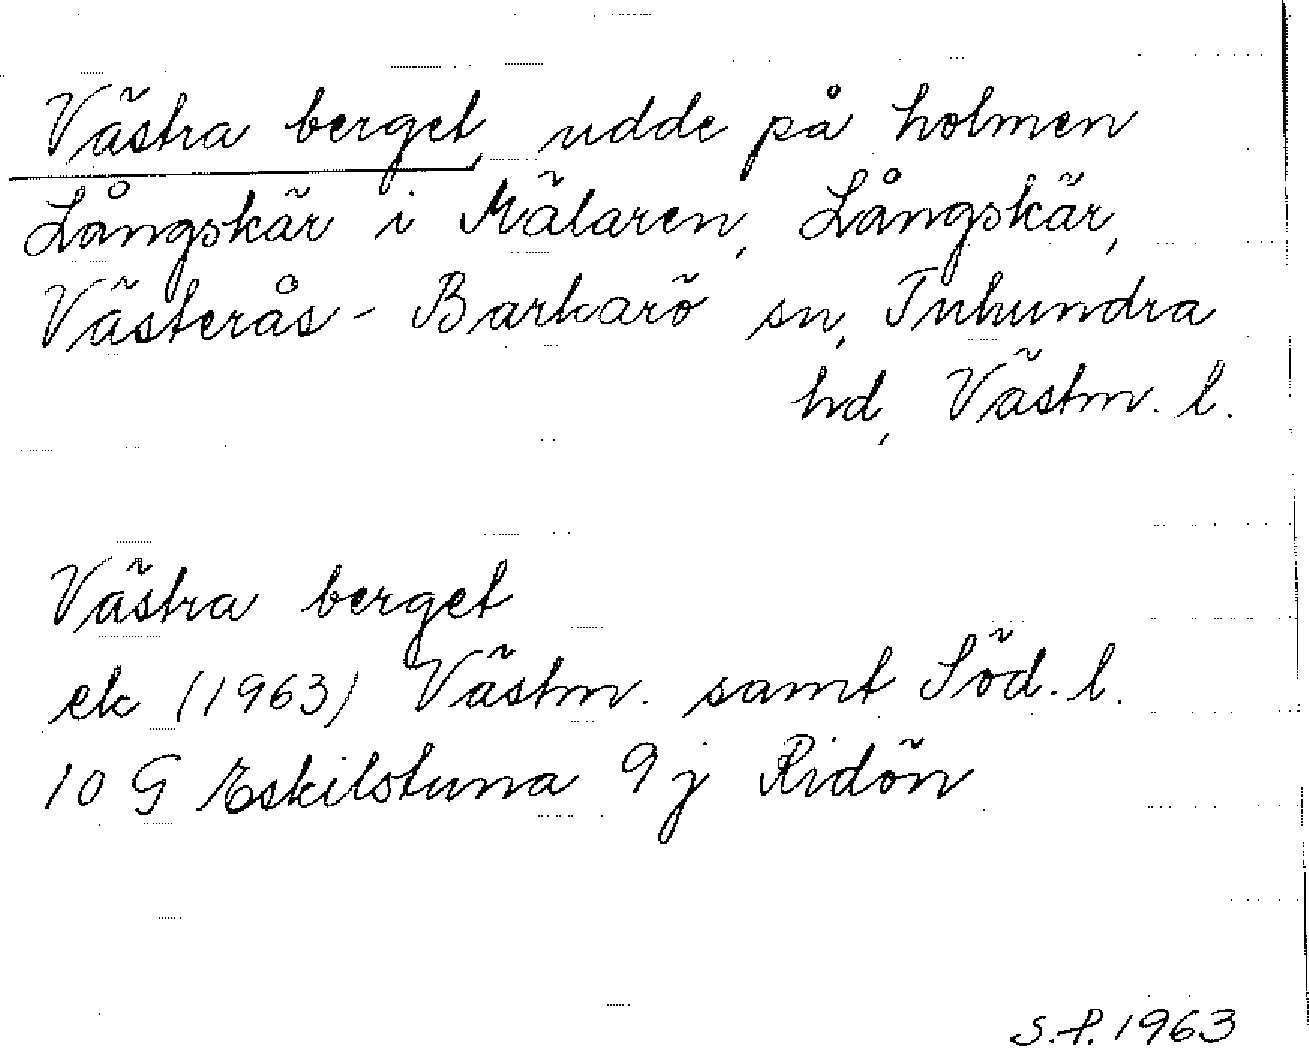 Västra berget, udde på holmen
Långskär i Mälaren, Långskär,
Västerås-Barkarö sn, Tuhundra
hd, Västm. l.
Västra berget
ek (1963) Västm. samt Söd. l.
10 G Eskilstuna 9j Ridön
S.P. 1963